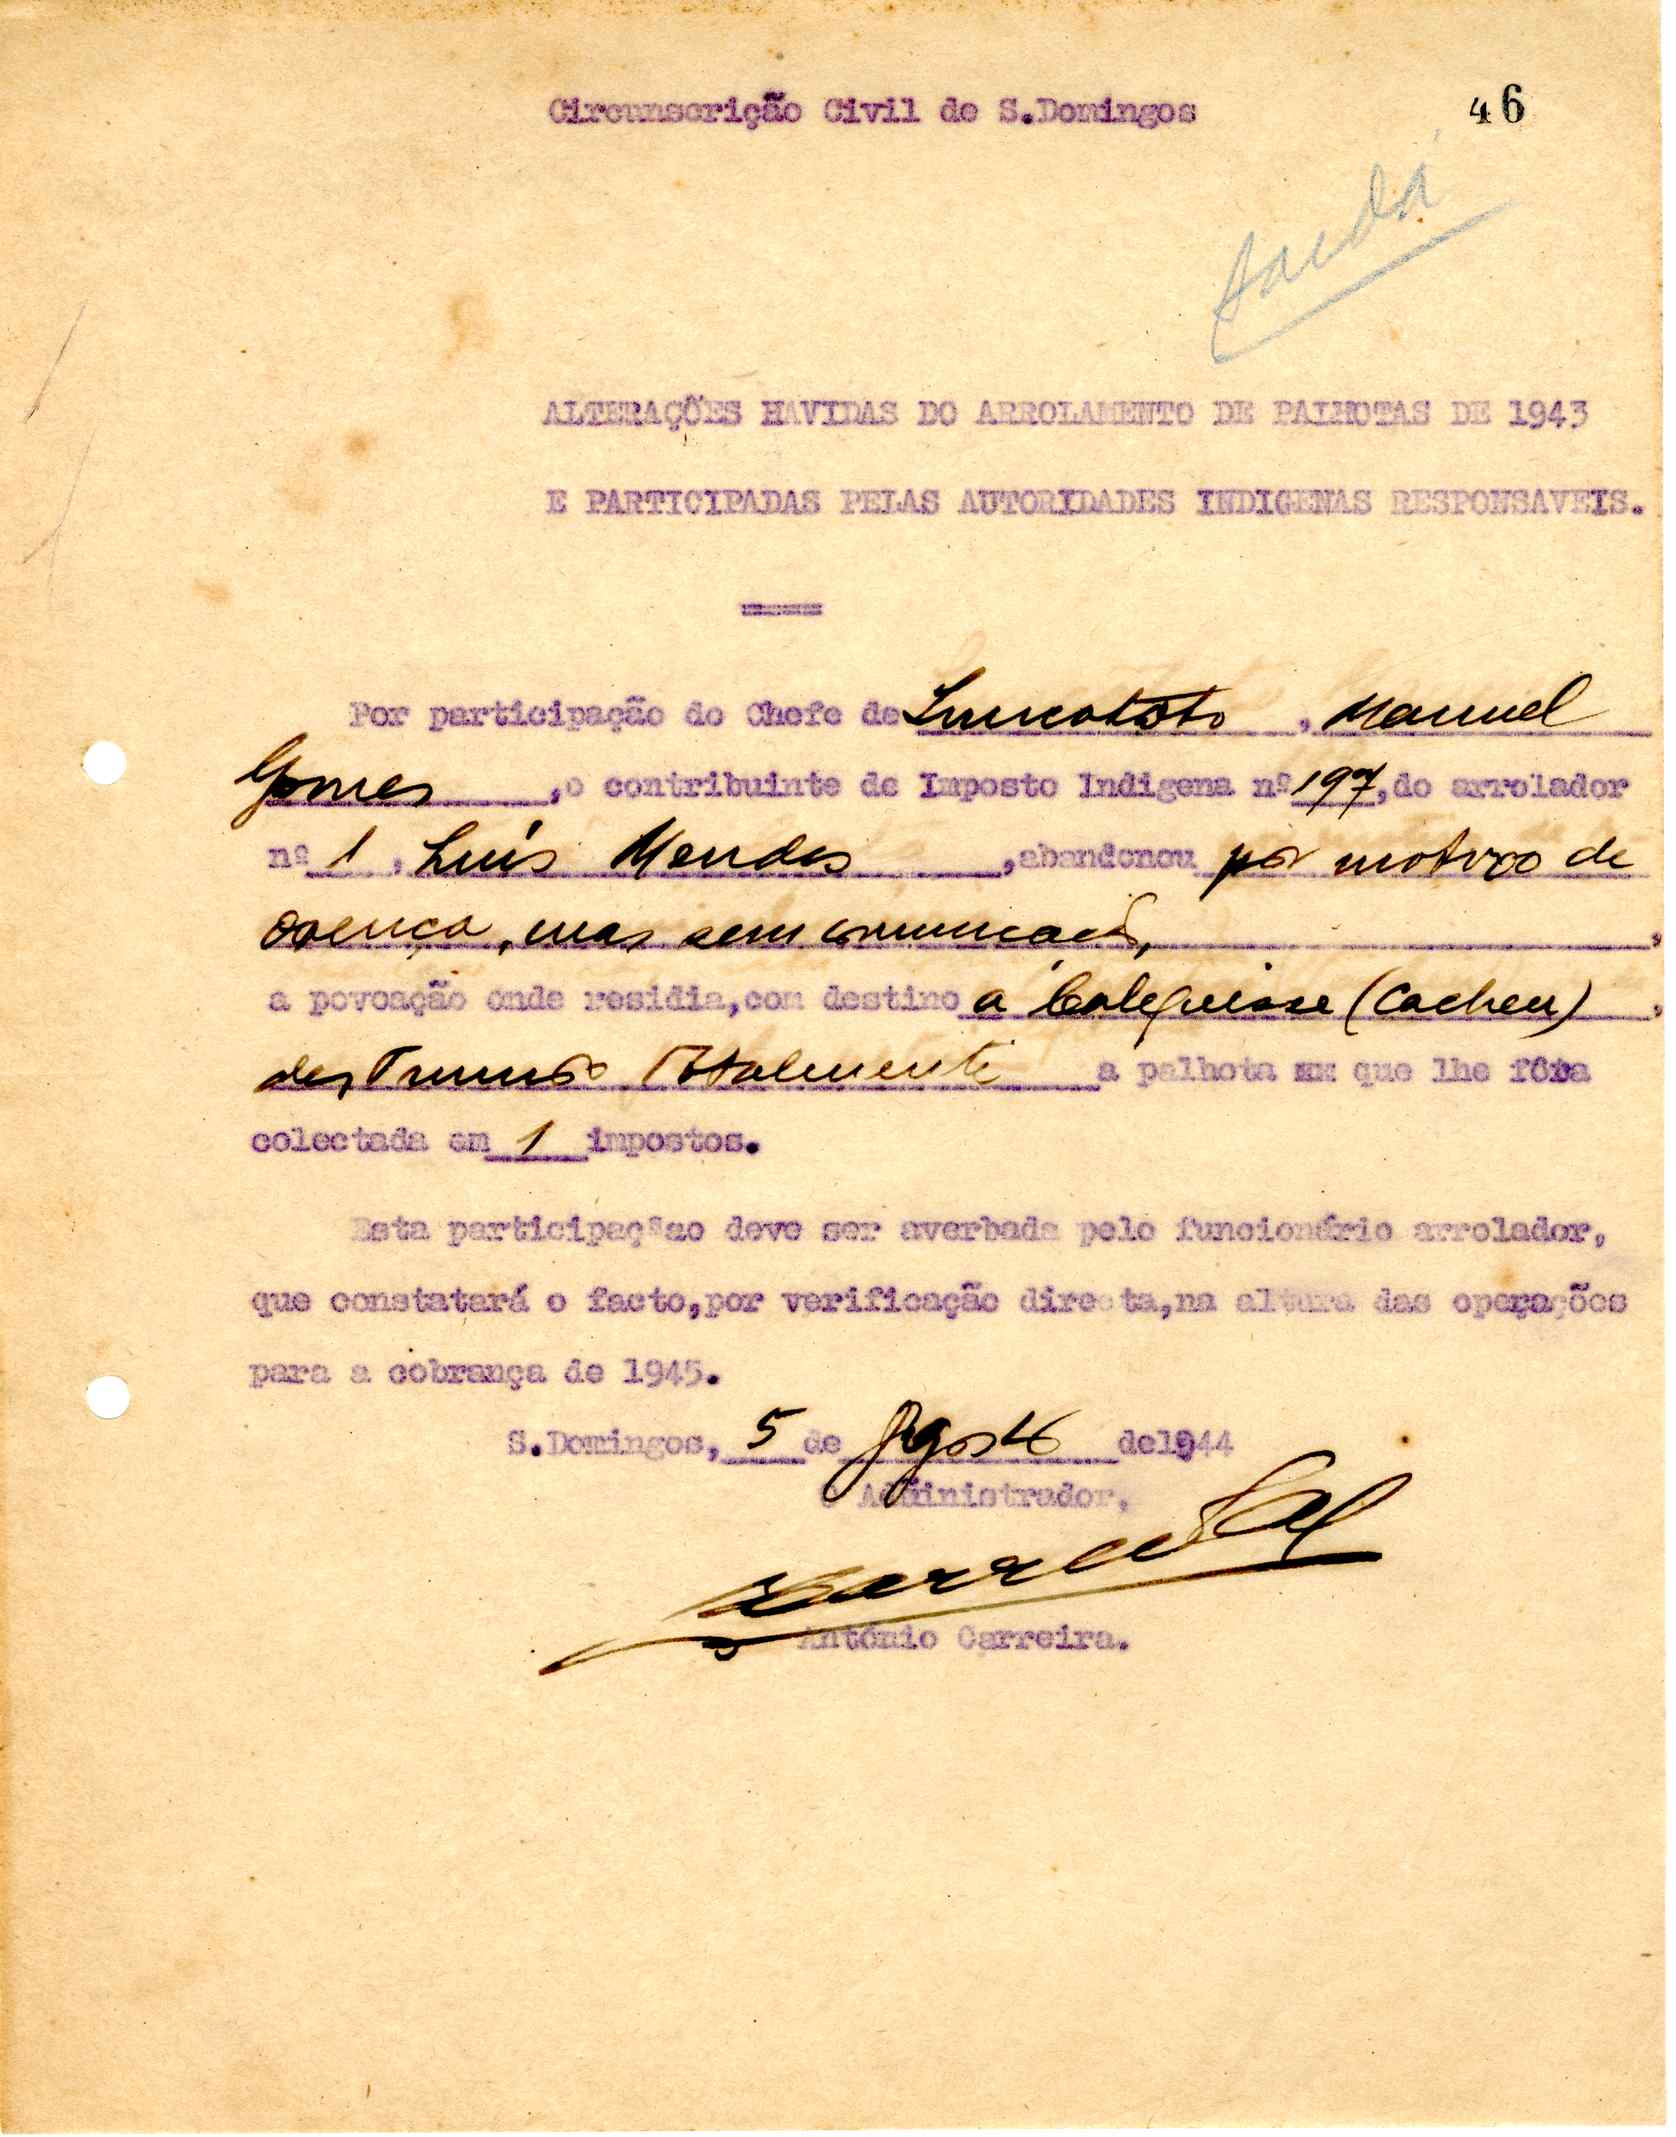 Circunscrição Civil de S.Domingos
46
ALTERAÇÕES HAVIDAS DO ARROLAMENTO DE PALHOTAS DE 1943
E PARTICIPADAS PELAS AUTORIDADES INDIGENAS RESPONSAVEIS.
Por participação do Chefe de , Manuel
Gomes ,o contribuinte de Imposto Indigena nº 197,do arrolador
nº 1 , Luís Mendes ,abandonou por motivo de
doença, mas sem comunicação, ,
a povoação onde residia,com destino a Calequisse (Cacheu) ,
destruindo totalmente a palhota xx que lhe fôra
colectada em 1 impostos.
Esta participaçãao deve ser averbada pelo funcionário arrolador,
que constatará o facto,por verificação directa,na altura das operações
para a cobrança de 1945.
S.Domingos, 5 de Agosto de1944
O Administrador,
António Carreira.